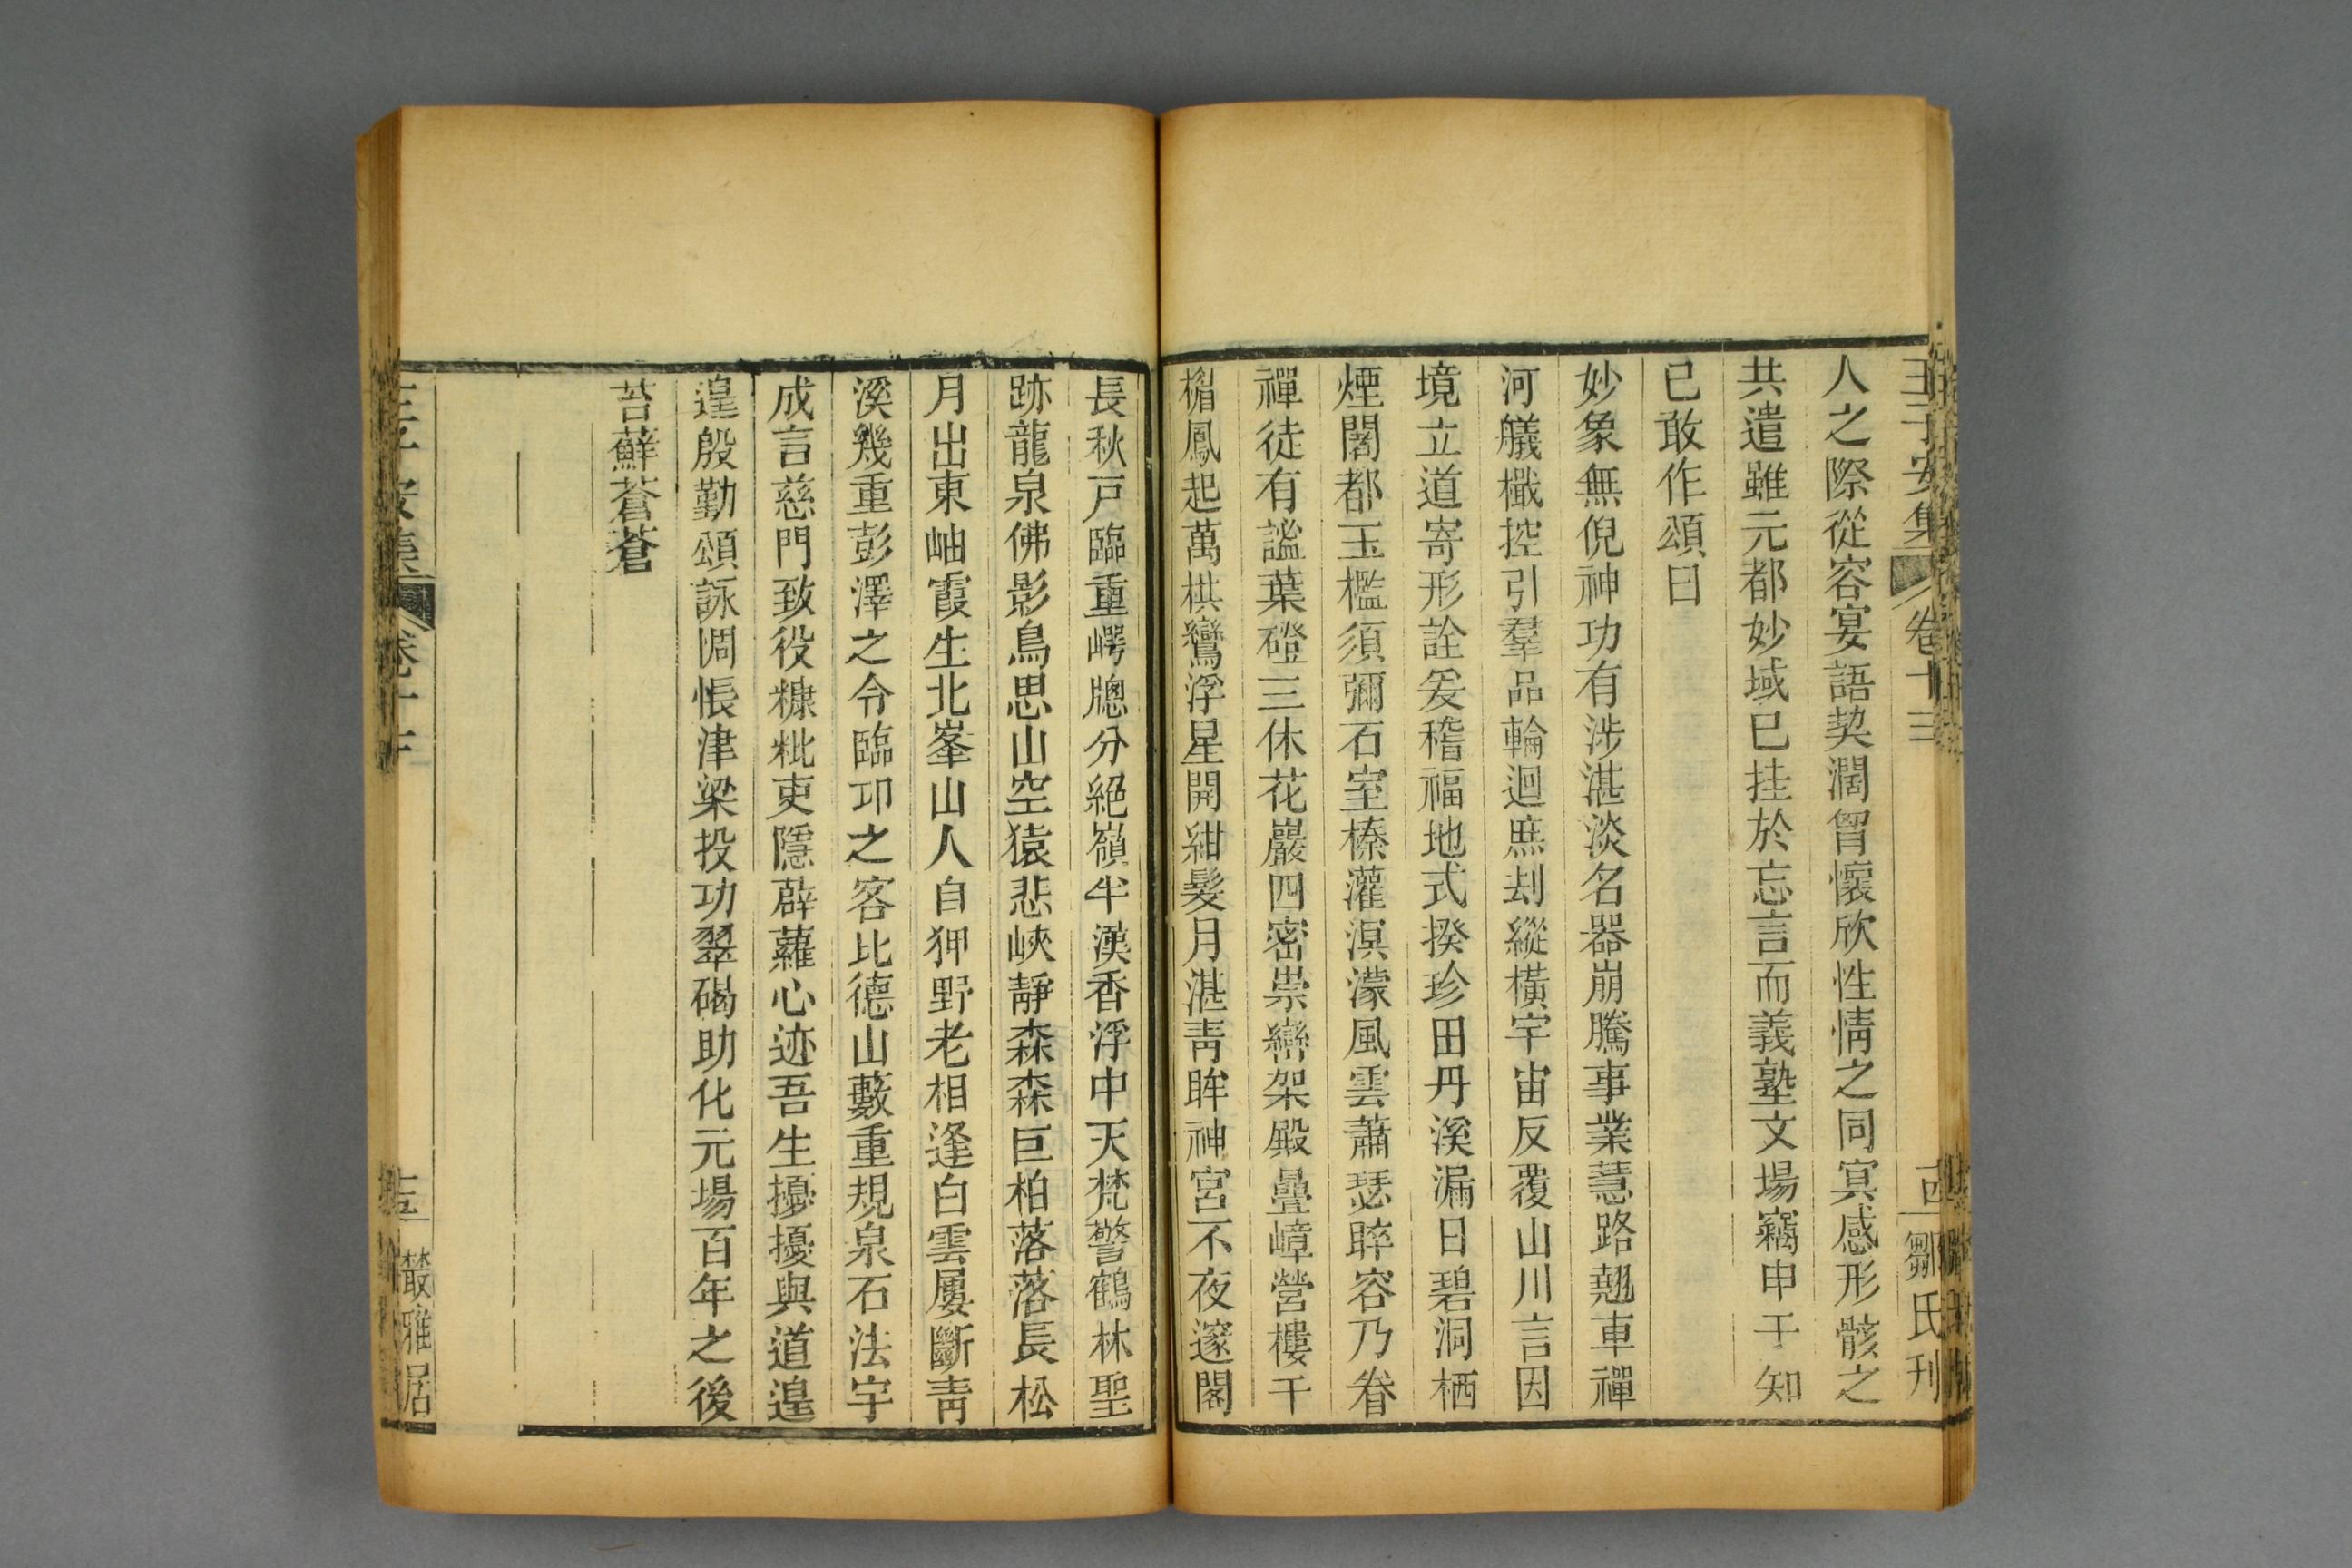 王子安集 卷十三 古 鄒氏刊
人之際從容宴語契濶胷懷欣性情之同冥感形骸之
共遣雖元都妙域已挂於忘言而義塾文場竊申于知
已敢作頌曰
妙象無倪神功有涉湛淡名器崩騰事業慧路翹車禪
河艤檝控引羣品輪迴庶刦縱橫宇宙反覆山川言因
境立道寄形詮爰稽福地式揆珍田丹溪漏日碧洞栖
煙闍都玉檻須彌石室榛灌溟濛風雲蕭瑟睟容乃眷
禪徒有謐葉磴三休花巖四密崇巒架殿疊嶂營樓千
楣鳳起萬栱鸞浮星開紺髮月湛靑眸神宮不夜邃閣
長秋戸臨重崿牕分絕嶺半漢香浮中天梵警鶴林聖
跡龍泉佛影鳥思山空猿悲峽靜森森巨柏落落長松
月出東岫霞生北峯山人自狎野老相逢白雲屢斷靑
溪幾重彭澤之令臨邛之客比德山藪重規泉石法宇
成言慈門致役糠粃吏隱薜蘿心迹吾生擾擾與道遑
遑殷勤頌詠惆悵津梁投功翠碣助化元場百年之後
苔蘚蒼蒼
王子安集 卷十三 叢雅居